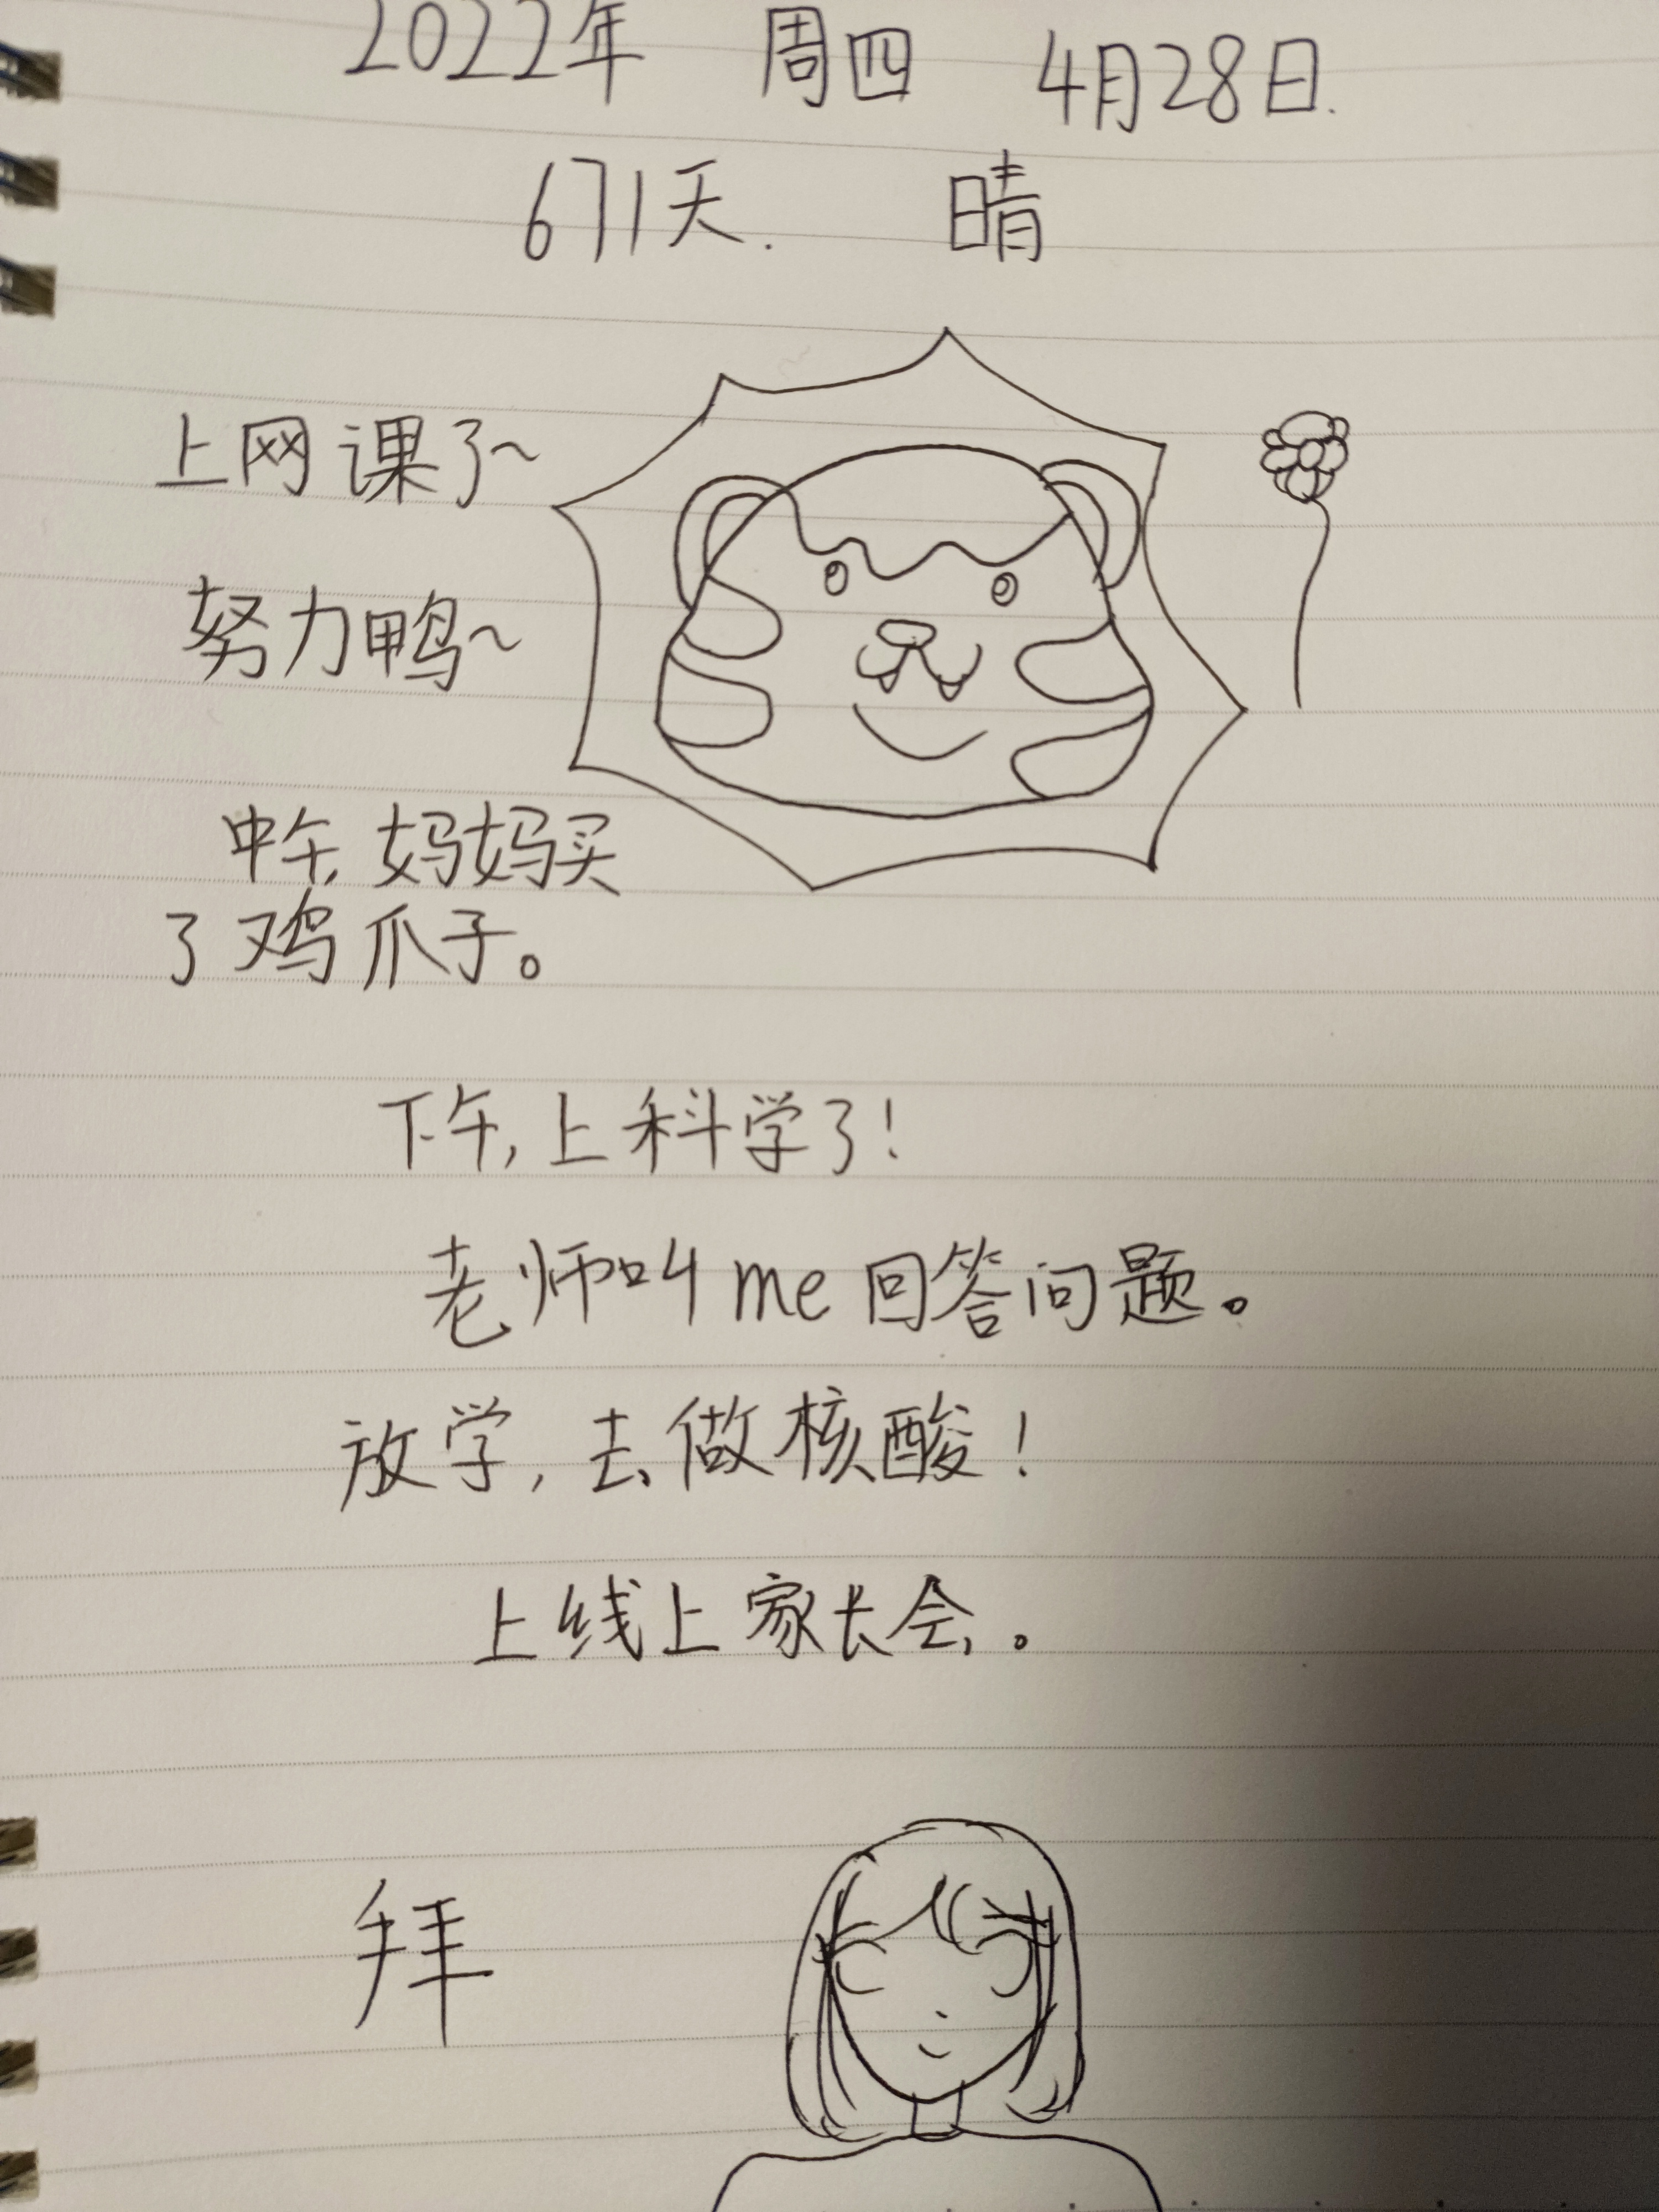 2022年 周四 4月28日.
671天. 晴
上网课了~
努力鸭~
中午,妈妈买
了鸡爪子。
下午,上科学了!
老师叫me回答问题。
放学,去做核酸!
上线上家长会。
拜